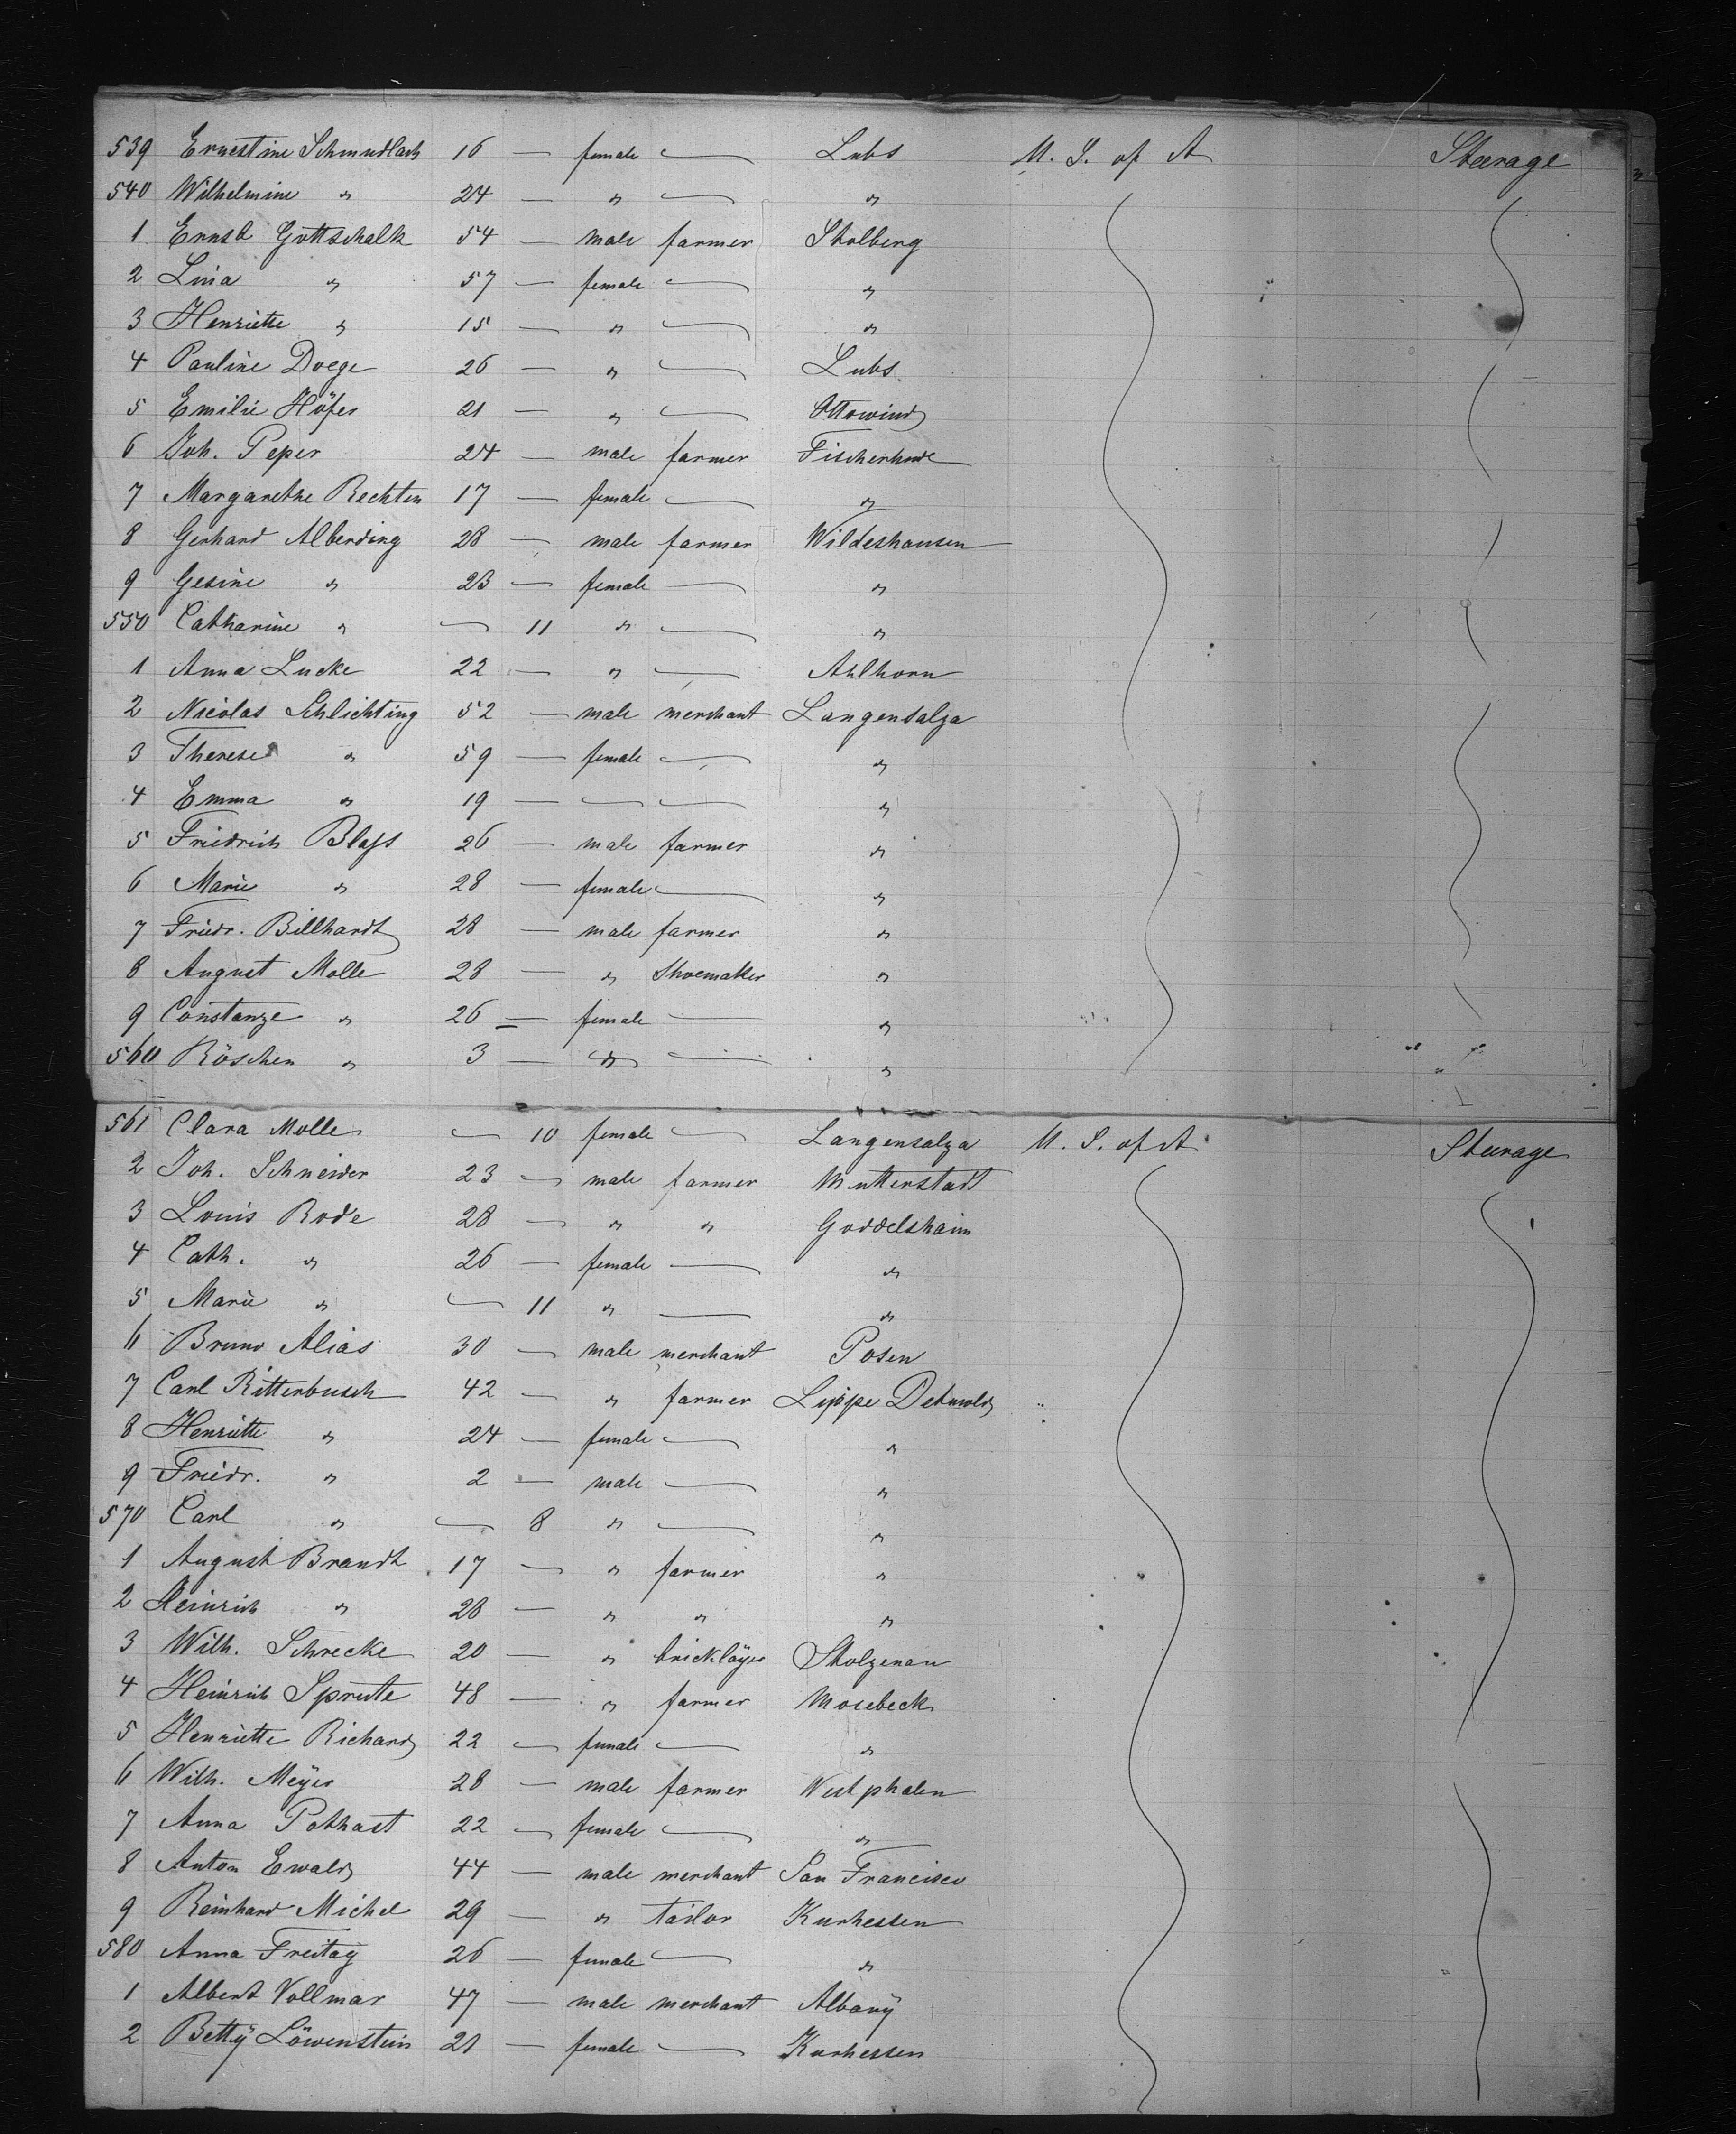 539 Ernestine Schmudlach 16 — female — Lubs U. S. of A Steerage
540 Wilhelmine " 24 — " — "
1 Ernst Gottschalk 54 — male farmer Stolberg
2 Lina " 57 — female — "
3 Henriette " 15 — " — "
4 Pauline Doege 26 — " — Lubs
5 Emilie Höfer 21 — " — Ottowind
6 Joh. Peper 24 — male farmer Fischerhude
7 Margarethe Rechten 17 — female — "
8 Gerhard Alberding 28 — male farmer Wildeshausen
9 Gesine " 23 — female — "
550 Catharine " — 11 " — "
1 Anna Lucke 22 — " — Ahlhorn
2 Nicolas Schlichting 52 — male merchant Langensalza
3 Therese " 59 — female — "
4 Emma " 19 — — — "
5 Friedrich Blass 26 — male farmer "
6 Marie " 28 — female — "
7 Friedr. Billhardt 28 — male farmer "
8 August Molle 28 — " Shoemaker "
9 Constanze " 26 — female — "
560 Röschen " 3 — " — "
561 Clara Molle — 10 female — Langensalza U. S. of A. Steerage
2 Joh. Schneider 23 — male farmer Mutterstadt
3 Louis Rode 28 — " " Goddelshaim
4 Cath. " 26 — female — "
5 Marie " — 11 " — "
6 Bruno Alias 30 — male merchant Posen
7 Carl Ritterbusch 42 — " farmer Lippe Detmold
8 Henriette " 24 — female — "
9 Friedr. " 2 — male — "
570 Carl " — 8 " — "
1 August Brandt 17 — " farmer "
2 Heinrich " 28 — " " "
3 Wilh. Schrecke 20 — " bricklayer Stolzenau
4 Heinrich Sprute 48 — " farmer Mosebeck
5 Henriette Richard 22 — female — "
6 Wilh. Meÿer 28 — male farmer Westphalen
7 Anna Pothast 22 — female — "
8 Anton Ewald 44 — male merchant San Francisco
9 Reinhard Michel 29 — " tailor Kurhessen
580 Anna Freitag 26 — female — "
1 Albert Vollmar 47 — male merchant Albanÿ
2 Bettÿ Löwenstein 21 — female — Kurhessen